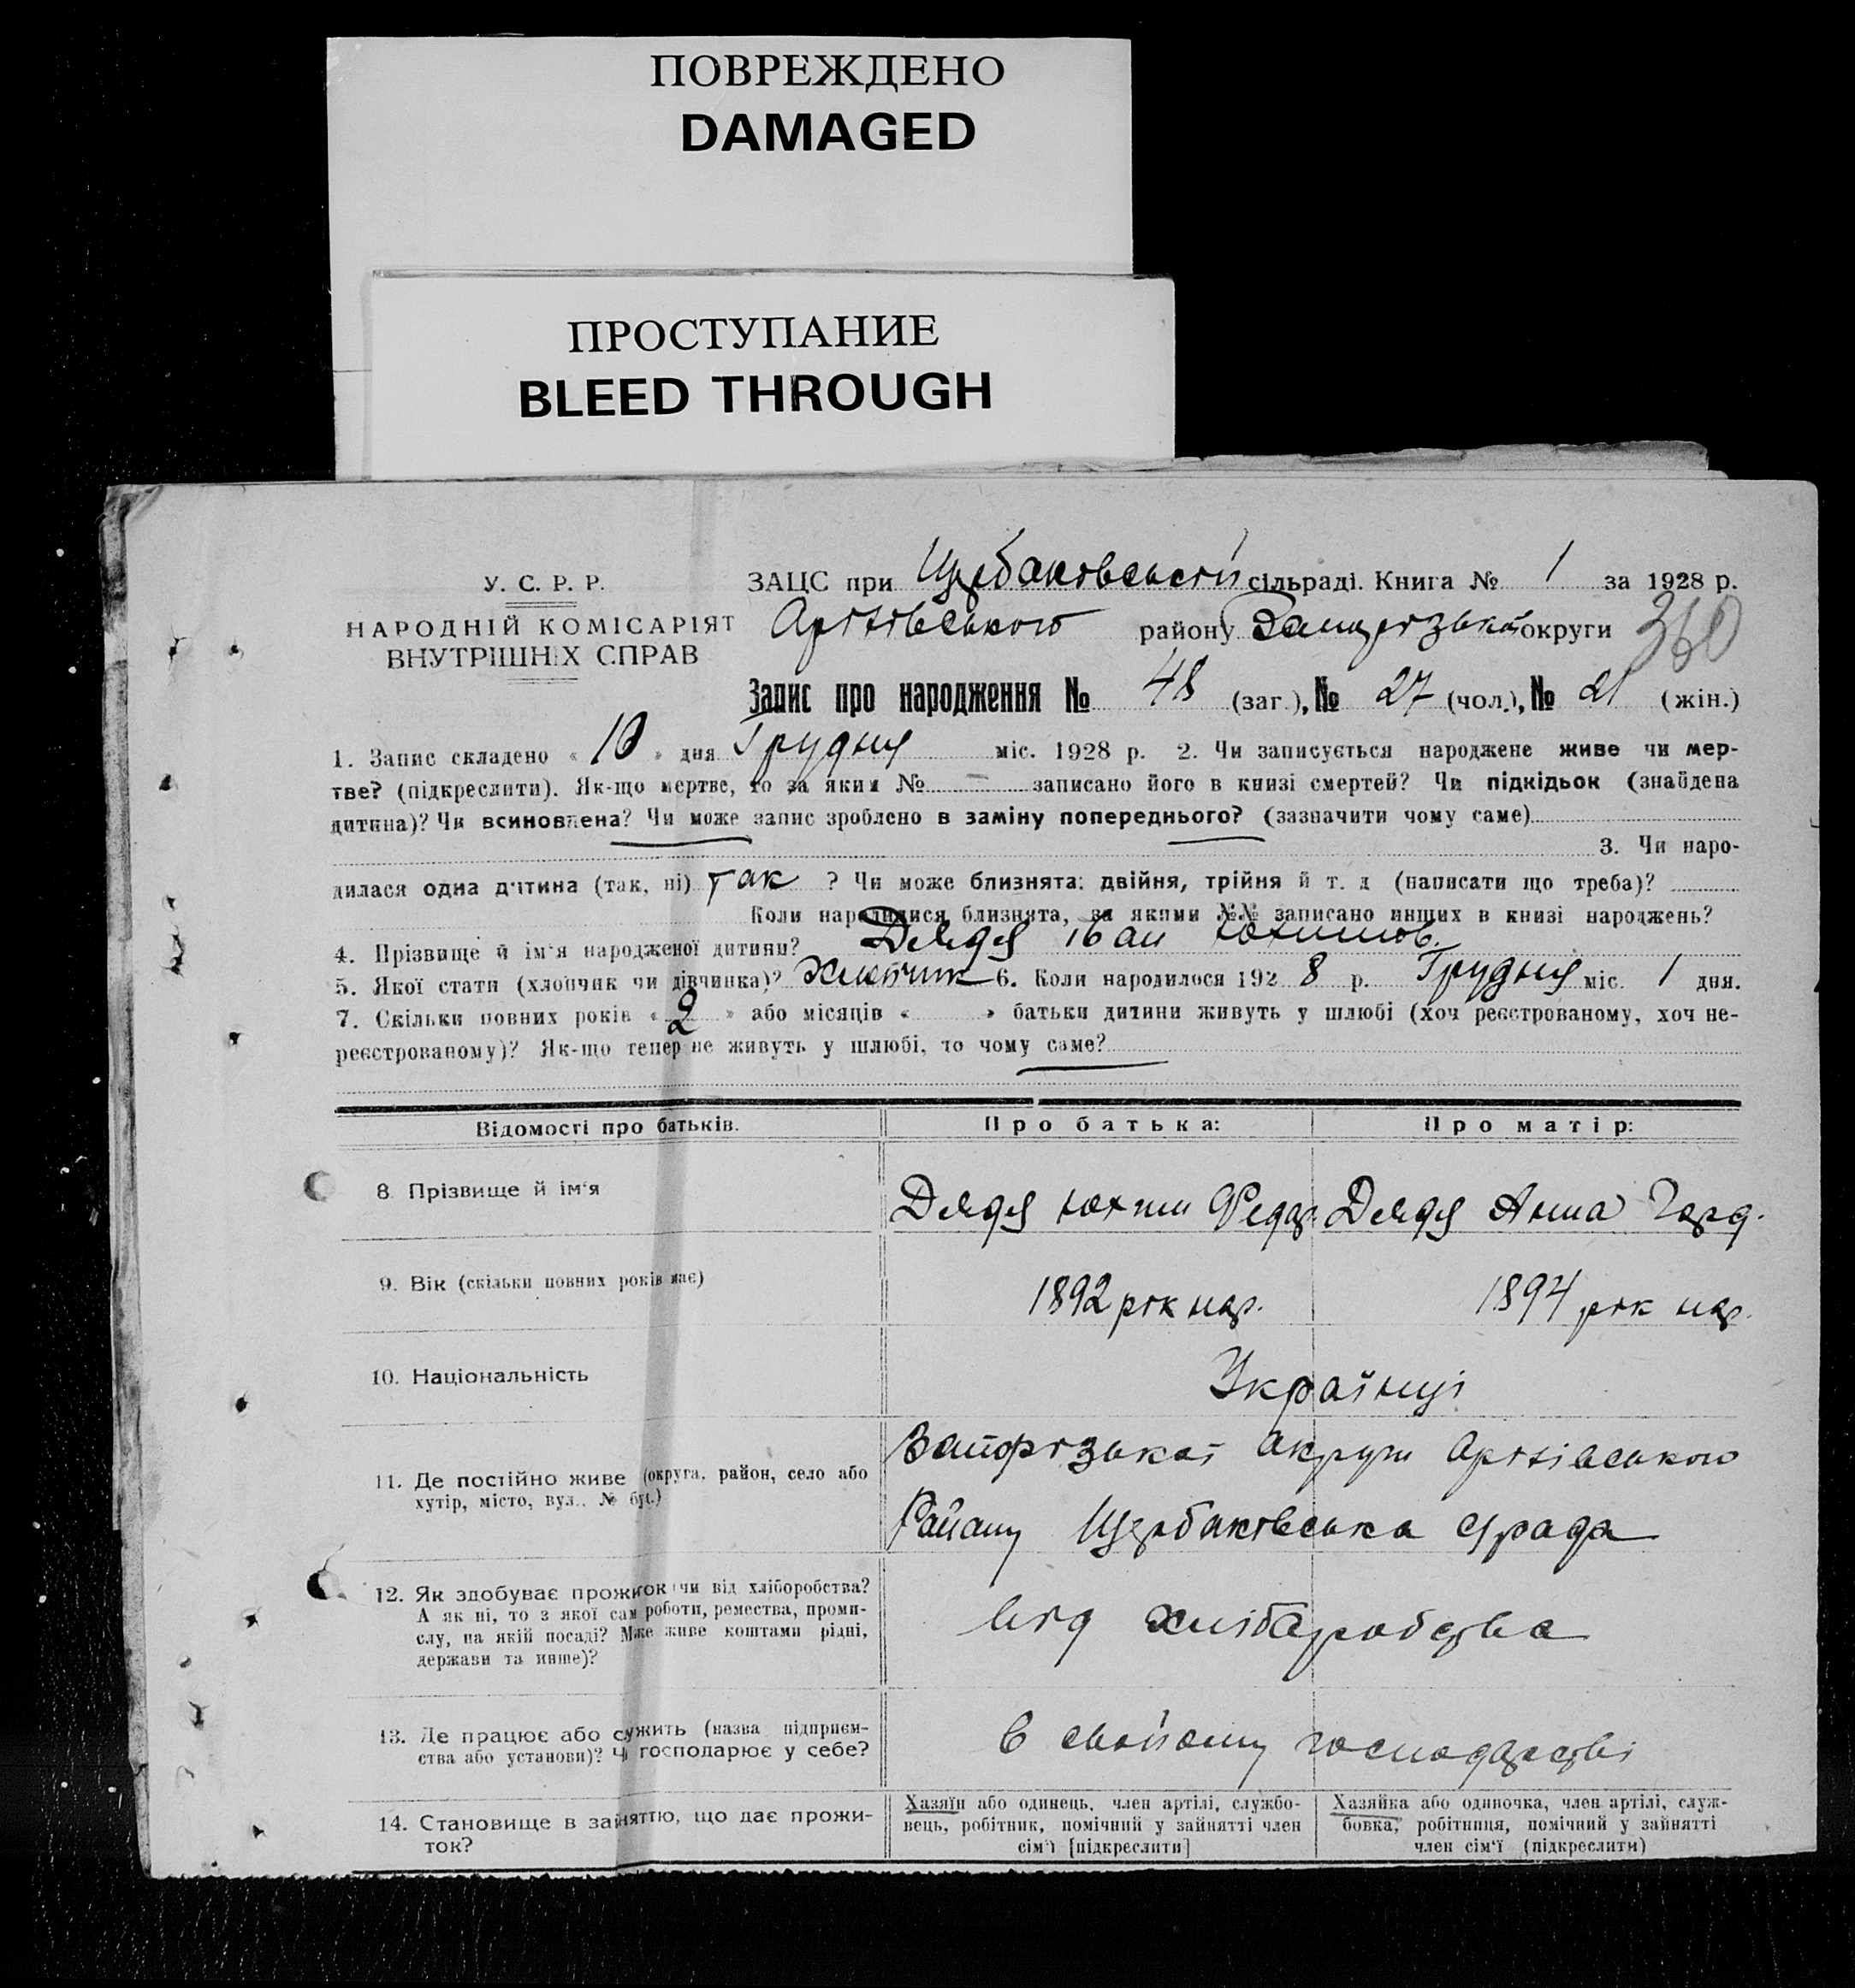 ПОВРЕЖДЕНО
DAMAGED
ПРОСТУПАНИЕ
BLEED THROUGH
У. С. Р. Р.
НАРОДНІЙ КОМІСАРІЯТ
ВНУТРІШНІХ СПРАВ
ЗАЦС при Щербаковській сільраді. Книга № 1 за 1928 р.
району округи 360
Запис про народження № 48 (заг.), № 27 (чол.), № 21 (жін.)
1. Запис складено « 10 » дня Грудня міс. 1928 р. 2. Чи записується народжене живе чи мер-
тве? (підкреслити). Як-що мертве, то за яким № — записано його в книзі смертей? Чи підкідьок (знайдена
дитина)? Чи всиновлена? Чи може запис зроблено в заміну попереднього? (зазначити чому саме)
3. Чи наро-
дилася одна дитина (так, ні) так ? Чи може близнята: двійня, трійня й т. д (написати що треба)?
Коли народилися близнята, за якими №№ записано инших в книзі народжень?
4. Прізвище й ім'я народженої дитини? Дядя Іван Юхимов.
5. Якої стати (хлопчик чи дівчинка)? Хлопчик 6. Коли народилося 1928 р. Грудня міс. 1 дня.
7. Скільки повних років « 2 » або місяців « » батьки дитини живуть у шлюбі (хоч реєстрованому, хоч не-
реєстрованому)? Як-що тепер не живуть у шлюбі, то чому саме?
Відомості про батьків. Про батька: Про матір:
8 Прізвище й ім'я Дядя Юхим Федор. Дядя Анна Горд.
9. Вік (скільки повних років має) 1892 рік нар. 1894 рік нар.
10. Національність Українці
11. Де постійно живе (округа, район, село або
хутір, місто, вул., № буд.)
Запорізької Округи
Району Щербаківська с/рада
12. Як здобуває прожиток: чи від хліборобства?
А як ні, то з якої сам роботи, ремества, проми-
слу, на якій посаді? Може живе коштами рідні,
держави та инше)?
від хліборобства
13. Де працює або служить (назва підприєм-
ства або установи)? Чи господарює у себе?
в свойому господарстві
14. Становище в зайняттю, що дає прожи-
ток?
Хазяїн або одинець, член артілі, службо-
вець, робітник, помічний у зайнятті член
сім'ї [підкреслити]
Хазяйка або одиночка, член артілі, служ-
бовка, робітниця, помічний у зайнятті
член сім'ї (підкреслити)